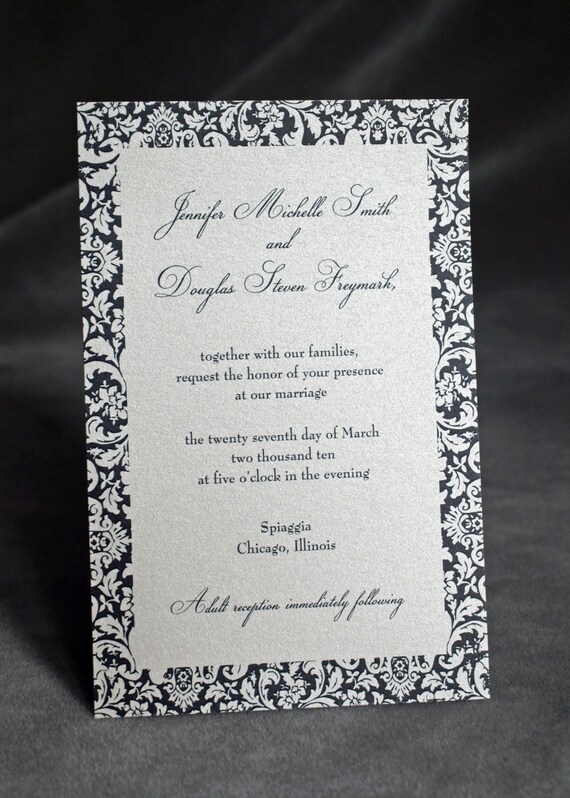 Jennifer Michelle Smith
and
Douglas Steven Freymark,
together with our families,
request the honor of your presence
at our marriage
the twenty seventh day of March
two thousand ten
at five o'clock in the evening
Spiaggia
Chicago, Illinois
Adult reception immediately following